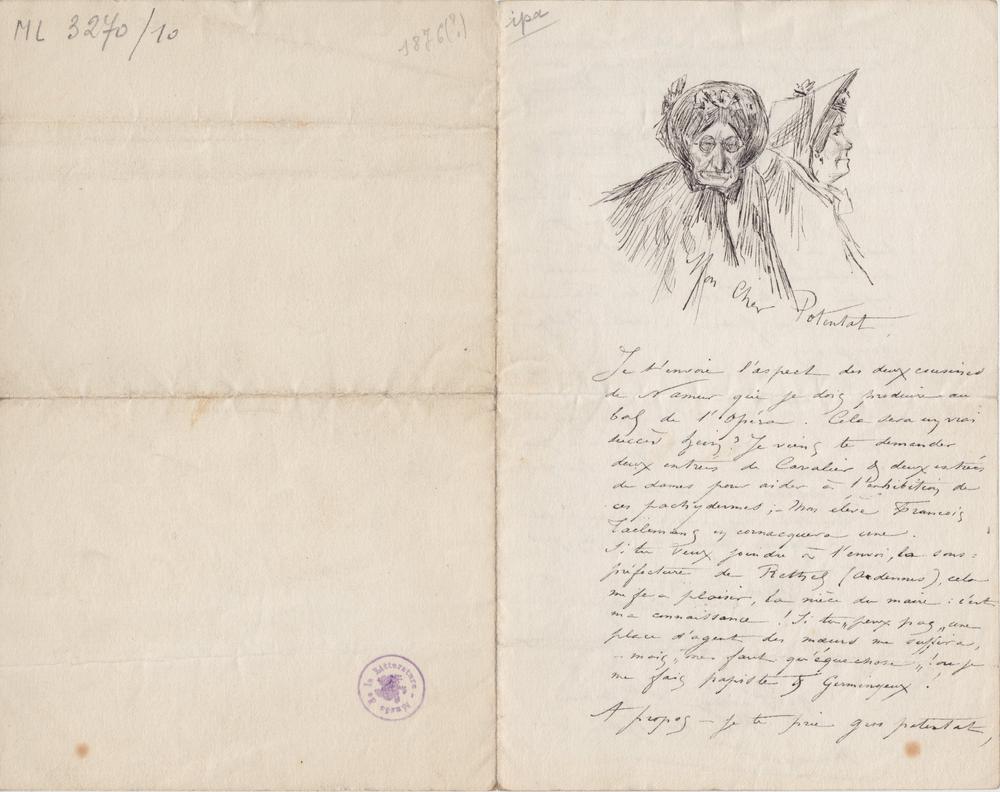 ML 3270/10
1876(?)
ipa
Mon Cher Potentat
Je t'envoie l'aspect des deux cousines
de Namur que je dois produire au
bal de l'Opéra. Cela sera un vrai
succès hein? Je viens te demander
deux entrées de Cavalier & deux entrées
de dames pour aider à l'exhibition de
ces pachydermes; - Mon élève François
Taelemans en cornacquera une.
Si tu veux joindre à l'envoi, la sous-
préfecture de Rethel (Ardennes), cela
me fera plaisir, la nièce du maire: c'est
ma connaissance! Si tu "peux pas" une
place d'agent des mœurs me suffira,
- mais "me faut qu'éque chose"! ou je
me fais papiste & Germineux!
A propos - je te prie gros potentat,
Musée de la Littérature